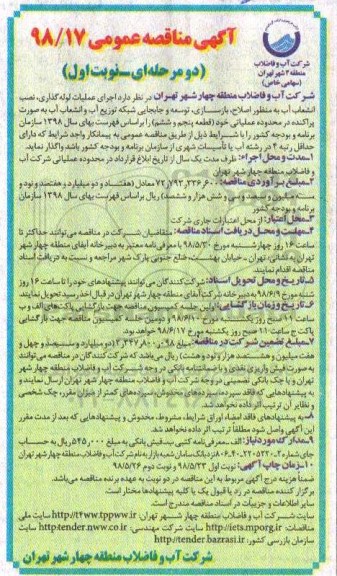 آگهی مناقصه عمومی ۹۸/۱۷
(دو مرحله‌ای ـ نوبت اول)
شرکت آب و فاضلاب
منطقه ۴ شهر تهران
(سهامی خاص)
شرکت آب و فاضلاب منطقه چهار شهر تهران در نظر دارد اجرای عملیات لوله‌گذاری، نصب
انشعاب آب به منظور اصلاح، بازسازی، توسعه و جابجایی شبکه توزیع آب و انشعاب آب به صورت
پراکنده در محدوده عملیاتی خود (قطعه پنجم و ششم) را بر اساس فهرست بهای سال ۱۳۹۸ سازمان
برنامه و بودجه کشور را با شرایط ذیل از طریق مناقصه عمومی به پیمانکار واجد شرایط که دارای
حداقل رتبه ۴ در رشته آب یا تأسیسات شهری از سازمان برنامه و بودجه کشور باشد واگذار نماید.
۱ـ مدت و محل اجراء: ظرف مدت یک سال از تاریخ ابلاغ قرارداد در محدوده عملیاتی شرکت آب
و فاضلاب منطقه چهار شهر تهران
۲ـ مبلغ برآوردی مناقصه: ۷۲/۷۹۳/۳۳۶/۶۰۰ معادل (هفتاد و دو میلیارد و هفتصد و نود و
سه میلیون و سیصد و سی و شش هزار و ششصد) ریال بر اساس فهرست بهای سال ۱۳۹۸ سازمان
برنامه و بودجه کشور
۳ـ محل اعتبار: از محل اعتبارات جاری شرکت
۴ـ مهلت و محل دریافت اسناد مناقصه: متقاضیان شرکت در مناقصه می‌توانند حداکثر تا
ساعت ۱۶ روز چهارشنبه مورخ ۹۸/۵/۳۰ با معرفی‌نامه معتبر به دبیرخانه آبفای منطقه چهار شهر
تهران به نشانی: تهران ـ خیابان بهشت ـ ضلع جنوبی پارک شهر مراجعه و نسبت به دریافت اسناد
مناقصه اقدام نمایند.
۵ـ تاریخ و محل تحویل اسناد: شرکت‌کنندگان می‌توانند پیشنهادهای خود را تا ساعت ۱۶ روز
شنبه مورخ ۹۸/۶/۹ به دبیرخانه آبفای منطقه چهار شهر تهران در قبال اخذ رسید تحویل نمایند.
۶ـ تاریخ و زمان بازگشایی: اولین جلسه کمیسیون مناقصه جهت بازگشایی پاکت‌های الف و ب
ساعت ۱۱ صبح روز یکشنبه مورخ ۹۸/۶/۱۰ و دومین جلسه کمیسیون مناقصه جهت بازگشایی
پاکت ج ساعت ۱۱ صبح روز یکشنبه مورخ ۹۸/۶/۱۷ خواهد بود.
۷ـ مبلغ تضمین شرکت در مناقصه:
هفت میلیون و هشتصد هزار و نود و هشت) ریال می‌باشد که شرکت کنندگان در مناقصه می‌توانند
به صورت فیش واریزی نقدی و یا ضمانتنامه بانکی در وجه شرکت آب و فاضلاب منطقه چهار شهر
تهران و یا چک بانکی تضمینی در وجه شرکت آب و فاضلاب منطقه چهار شهر تهران ارسال نمایند و
به پیشنهادهایی که فاقد سپرده، سپرده‌های مخدوش، سپرده‌های کمتر از میزان مقرر، چک شخصی
و نظایر آن ترتیب اثر داده نخواهد شد.
۸ـ به پیشنهادهای فاقد امضاء اوراق شرایط، مشروط، مخدوش و پیشنهادهایی که بعد از مدت مقرر
این آگهی واصل شود مطلقاً ترتیب اثر داده نخواهد شد.
۹ـ مدارک مورد نیاز: الف ـ معرفی‌نامه کتبی ب ـ فیش بانکی به مبلغ ۵۴۵/۰۰۰ ریال به حساب
۱۰ـ زمان چاپ آگهی: نوبت اول ۹۸/۵/۲۳ نوبت دوم ۹۸/۵/۲۶
ضمناً هزینه درج آگهی مربوط به این مناقصه در دو نوبت به عهده برنده مناقصه می‌باشد.
برگزار کننده مناقصه در رد یا قبول یک یا کلیه پیشنهادها مختار است.
سایر اطلاعات و جزییات در اسناد مناقصه مندرج است.
سایت شرکت آب و فاضلاب منطقه چهار شهر تهران: http://t4ww.tppww.ir سایت ملی
مناقصات: http://iets.mporg.ir سایت شرکت مهندسی: http:tender.nww.co.ir سایت
سازمان بازرسی کشور: http://tender.bazrasi.ir
شرکت آب و فاضلاب منطقه چهار شهر تهران